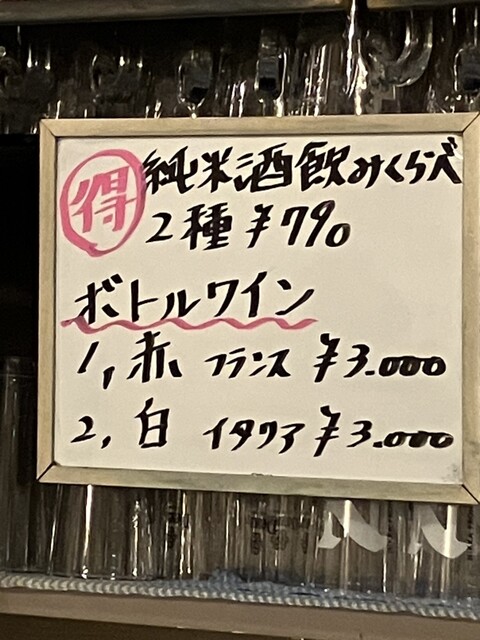 得 純米酒飲みくらべ
2種 ¥790
ボトルワイン
1, 赤 フランス ¥3.000
2, 白 イタリア ¥3.000